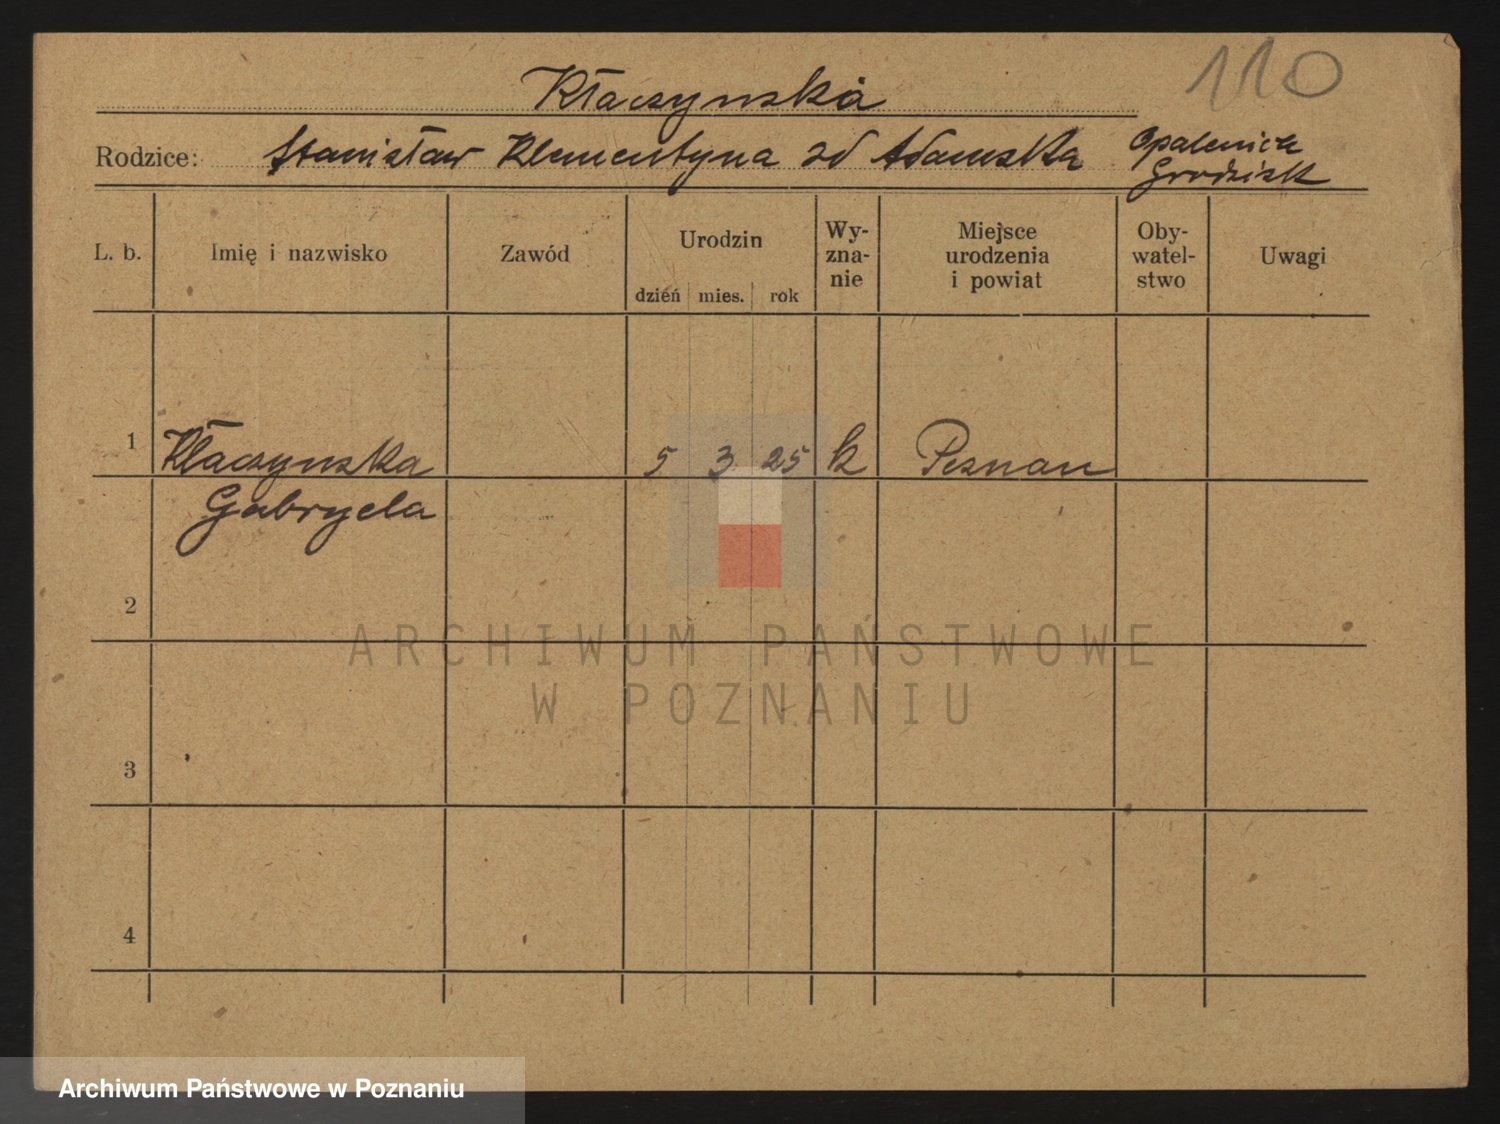 110
Kłaczynska
Rodzice: Stanisław Klementyna zd Adamska Opalenica
Grodzisk
L. b. Imię i nazwisko Zawód Urodzin dzień mies. rok Wy-zna-nie Miejsce urodzenia i powiat Oby-watel-stwo Uwagi
1 Kłaczynska 5 3 25 k Poznan
Gabryela
2
ARCHIWUM PAŃSTWOWE
W POZNANIU
3
4
Archiwum Państwowe w Poznaniu